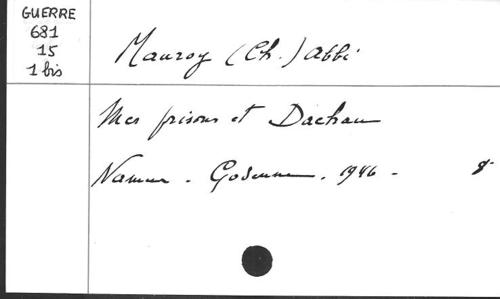 GUERRE
681
15
1 bis
Mauroy (Ch.) abbé
Mes prisons et Dachau
Namur - Godenne, 1946 - 8°